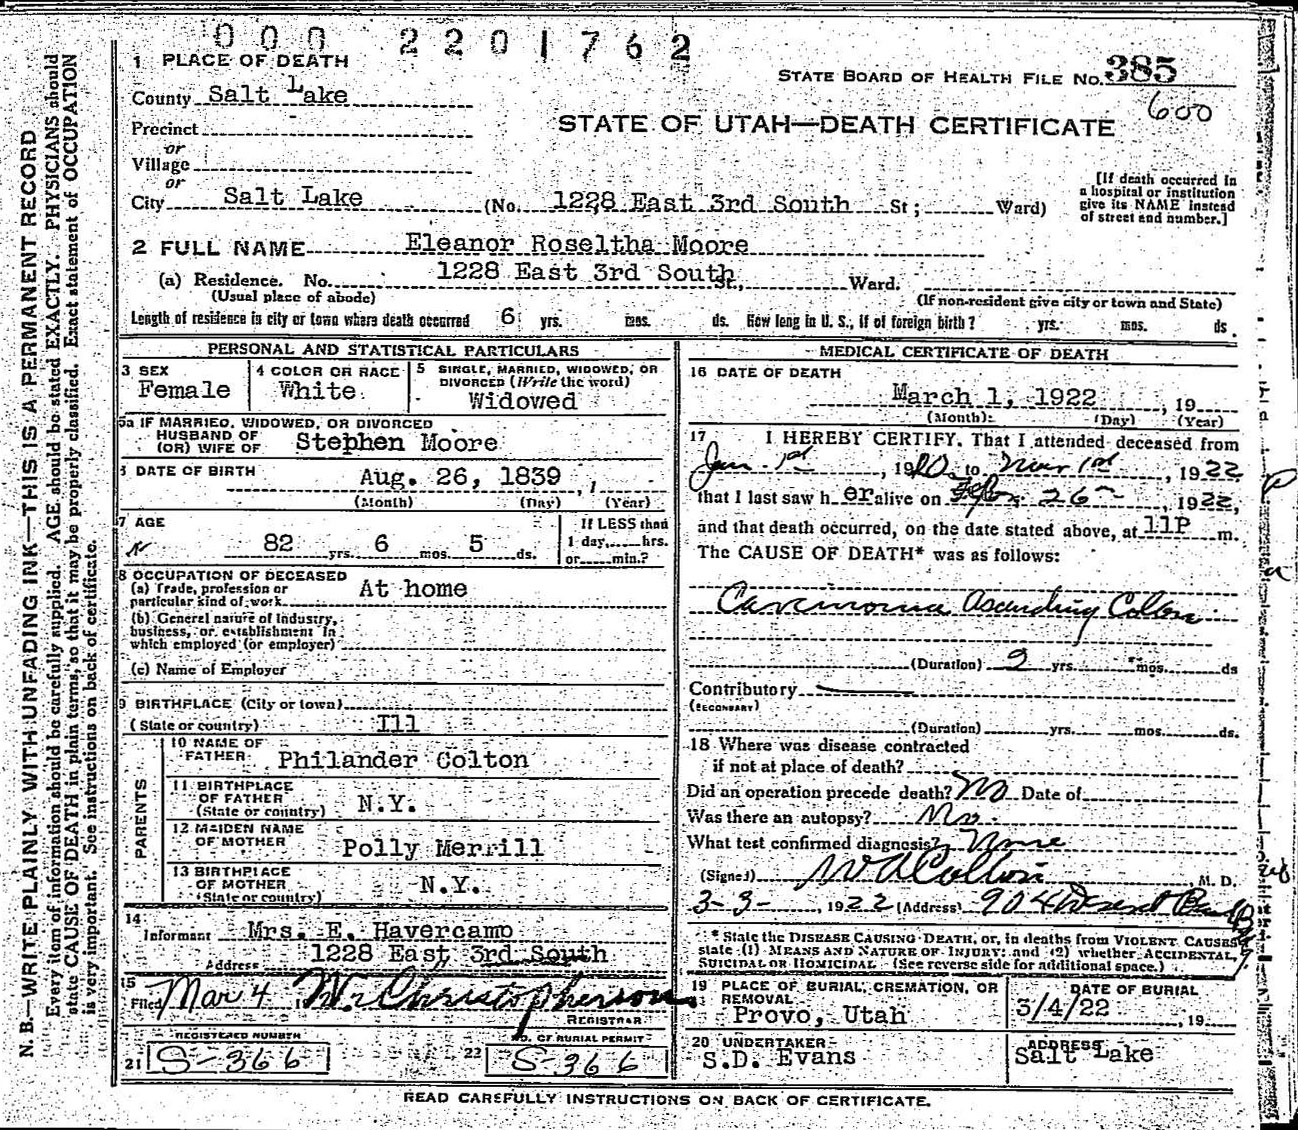 000 2201762
1 PLACE OF DEATH
STATE BOARD OF HEALTH FILE No. 385
County Salt Lake
600
Precinct
STATE OF UTAH—DEATH CERTIFICATE
or
Village
or
City Salt Lake (No. 1228 East 3rd South St; Ward)
[If death occurred in
a hospital or institution
give its NAME instead
of street and number.]
2 FULL NAME Eleanor Roseltha Moore
(a) Residence. No. 1228 East 3rd South St., Ward.
(Usual place of abode)
(If non-resident give city or town and State)
Length of residence in city or town where death occurred 6 yrs. mos. ds. How long in U. S., if of foreign birth? yrs. mos. ds.
PERSONAL AND STATISTICAL PARTICULARS
3 SEX
Female
4 COLOR OR RACE
White
5 SINGLE, MARRIED, WIDOWED, OR
DIVORCED (Write the word)
Widowed
5a IF MARRIED, WIDOWED, OR DIVORCED
HUSBAND OF
(OR) WIFE OF Stephen Moore
6 DATE OF BIRTH
Aug. 26, 1839
(Month) (Day) (Year)
7 AGE
82 yrs. 6 mos. 5 ds.
If LESS than
1 day, hrs.
or min.?
8 OCCUPATION OF DECEASED
(a) Trade, profession or
particular kind of work At home
(b) General nature of Industry,
business, or establishment in
which employed (or employer)
(c) Name of Employer
9 BIRTHPLACE (City or town)
(State or country) Ill
PARENTS
10 NAME OF
FATHER Philander Colton
11 BIRTHPLACE
OF FATHER
(State or country) N.Y.
12 MAIDEN NAME
OF MOTHER Polly Merrill
13 BIRTHPLACE
OF MOTHER
(State or country) N.Y.
14
Informant Mrs. E. Havercamp
Address 1228 East 3rd South
15
Filed Mar 4 1 W. Christopherson
REGISTRAR
REGISTERED NUMBER
21 S-366
NO. OF BURIAL PERMIT
22 S-366
MEDICAL CERTIFICATE OF DEATH
16 DATE OF DEATH
March 1, 1922, 19
(Month) (Day) (Year)
17 I HEREBY CERTIFY, That I attended deceased from
Jan. 1st, 1920, to Mar 1st, 1922
that I last saw h er alive on Feb. 26, 1922,
and that death occurred, on the date stated above, at 11P m.
The CAUSE OF DEATH* was as follows:
Carcinoma Ascending Colon
(Duration) 2 yrs. mos. ds
Contributory
(SECONDARY)
(Duration) yrs. mos. ds.
18 Where was disease contracted
if not at place of death?
Did an operation precede death? No Date of
Was there an autopsy? No.
What test confirmed diagnosis? None
(Signed) W A Colton M. D.
3-3-, 1922 (Address) 904 Deseret Bank B
* State the DISEASE CAUSING DEATH, or, in deaths from VIOLENT CAUSES
state (1) MEANS AND NATURE OF INJURY; and (2) whether ACCIDENTAL,
SUICIDAL OR HOMICIDAL. (See reverse side for additional space.)
19 PLACE OF BURIAL, CREMATION, OR
REMOVAL
Provo, Utah
DATE OF BURIAL
3/4/22, 19
20 UNDERTAKER
S.D. Evans
ADDRESS
Salt Lake
READ CAREFULLY INSTRUCTIONS ON BACK OF CERTIFICATE.
N. B.—WRITE PLAINLY WITH UNFADING INK—THIS IS A PERMANENT RECORD
Every item of information should be carefully supplied. AGE should be stated EXACTLY. PHYSICIANS should
state CAUSE OF DEATH in plain terms, so that it may be properly classified. Exact statement of OCCUPATION
is very important. See instructions on back of certificate.